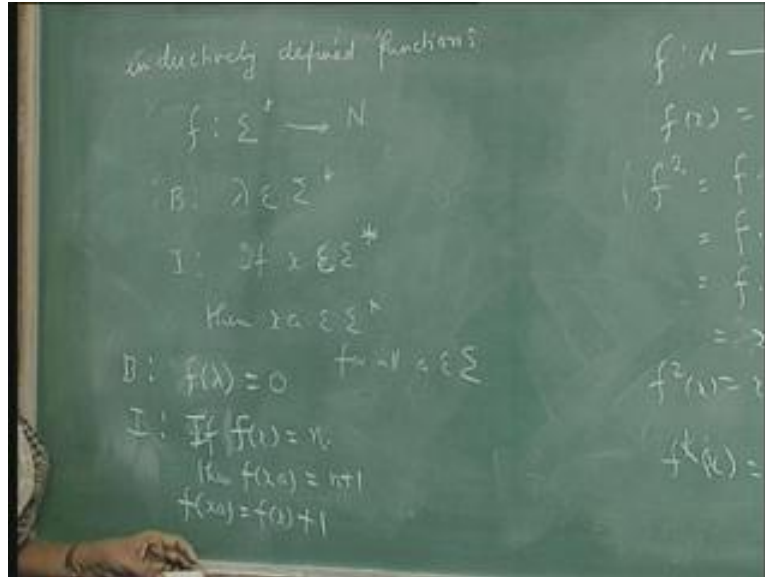 inductively defined functions
f : Σ* → N
B: λ ε Σ*
I: If x ε Σ*
then xa ε Σ*
for all a ε Σ
B: f(λ) = 0
I: If f(x) = n
then f(xa) = n+1
f(xa) = f(x) + 1
f : N —
f(x) =
f² = f .
= f .
= f .
=
f²(x) =
=